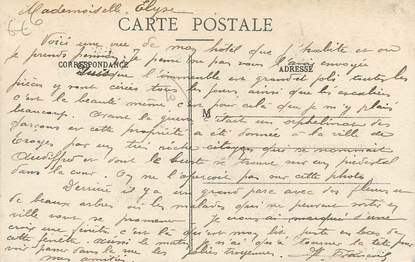 Mademoiselle, Elyse
CARTE POSTALE
Voici une vue de mon hôtel que j'habite et ou
je prends je pense ne pas vous l'avoir envoyée
CORRESPONDANCE
ADRESSE
que l'immeuble est grand et joli toutes les
pièces y sont cirées tous les jours, ainsi que les escaliers
c'est la beauté même, c'est pour cela que je m'y plais
beaucoup. Avant la guerre c'était un orphelinat des
M
garçons et cette propriété a été donnée à la ville de
Troyes par un très riche citoyen qui se nommait
Audiffred et dont le buste se trouve sur un piédestal
dans la cour. On ne l'aperçoit pas sur cette photo
Derrière il y a un grand parc avec des fleurs et
de beaux arbres où les malades qui ne peuvent sortir en
ville vont se promener Je vous ai marqué d'une
croix une fenêtre c'est là qu'est mon lit juste en bas de
cette fenêtre, aussi le matin je n'ai qu'à tourner la tête pour
voir passer dans la rue les jolies troyennes.
mes amitiés François